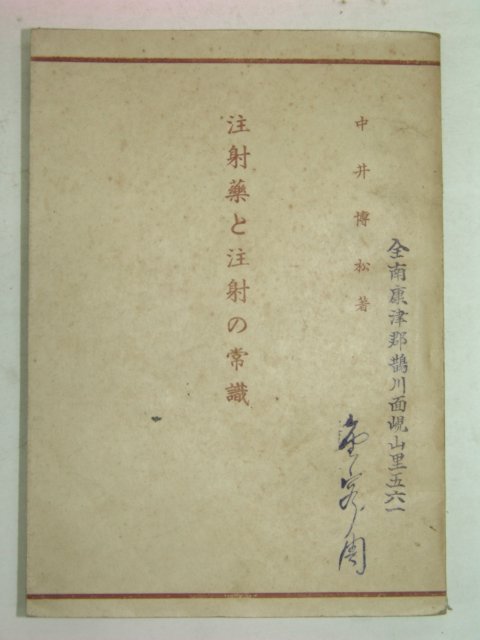 中井博松著
注射藥と注射の常識
全南康津郡鵲川面峴山里五六一